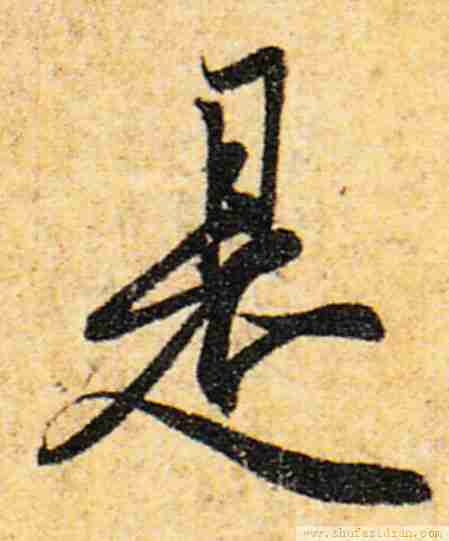 是
www.shufazidian.com